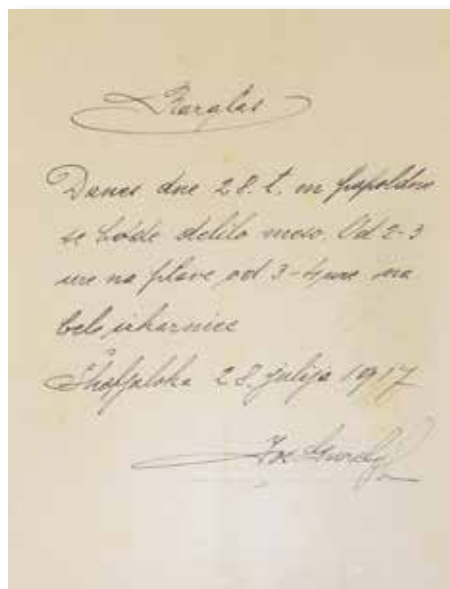 Razglas
Danes dne 28. t. m popoldne
se bode delilo meso. Od 2-3
ure na plave od 3-4 ure na
bele izkaznice
Škofjaloka 28. julija 1917
Jos.